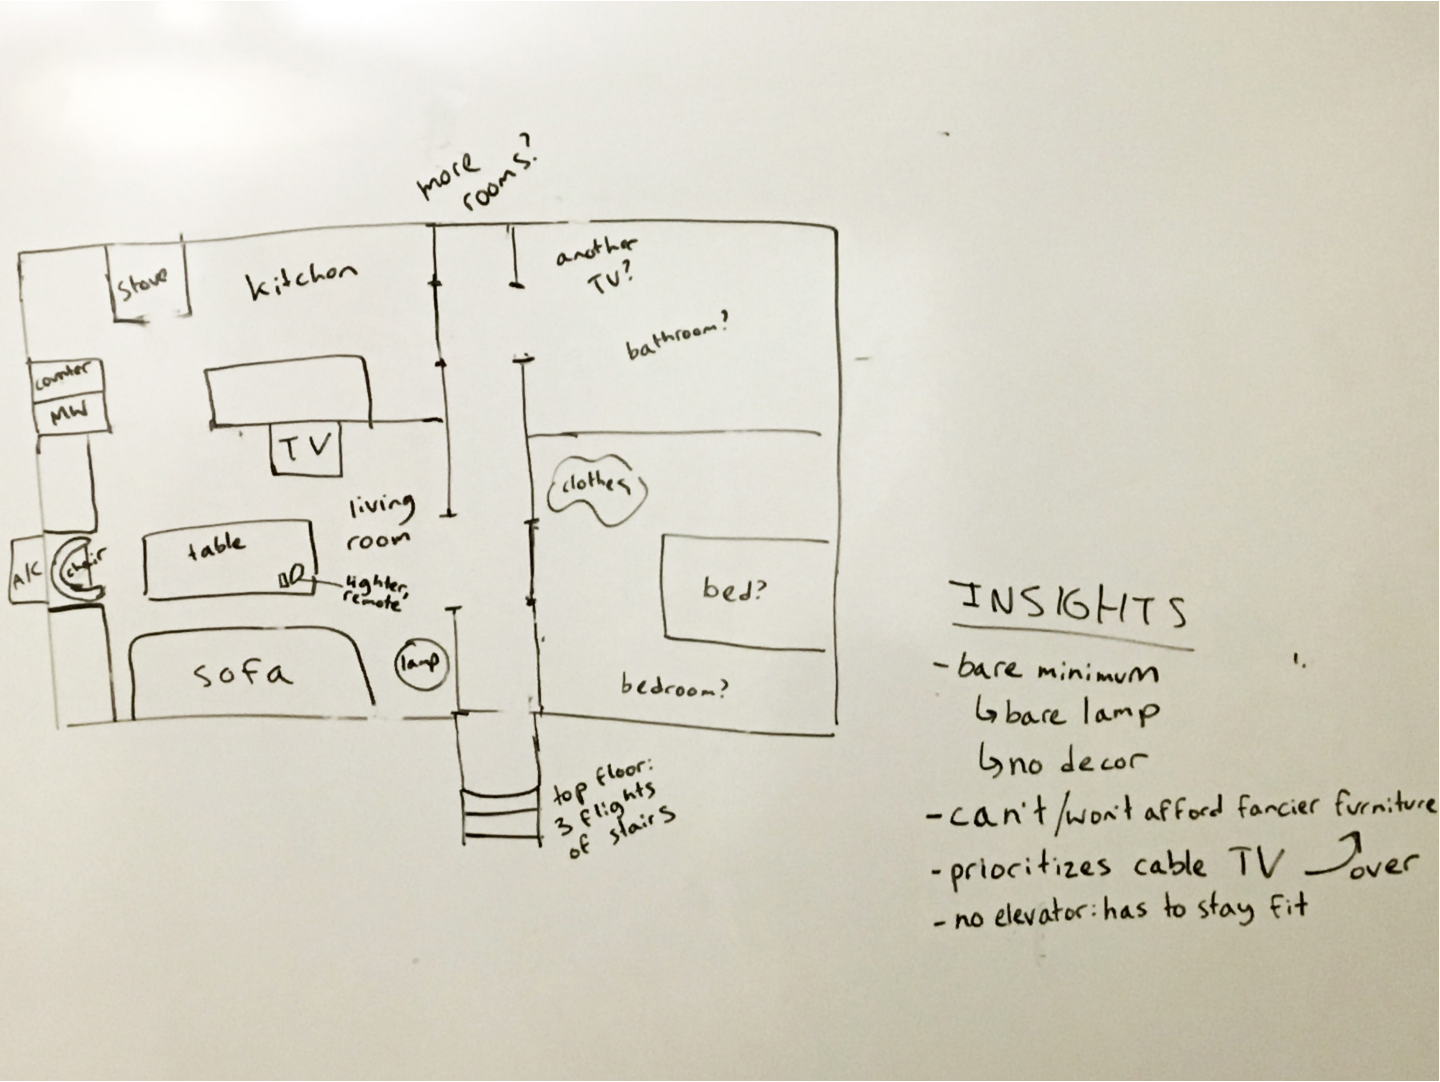 more
rooms?
another
TV?
stove
kitchen
bathroom?
counter
MW
TV
clothes
living
room
table
A/C
chair
lighter,
remote
bed?
sofa
lamp
bedroom?
top floor:
3 flights
of stairs
INSIGHTS
- bare minimum
↳ bare lamp
↳ no decor
- can't/won't afford fancier furniture
- prioritizes cable TV over
- no elevator: has to stay fit